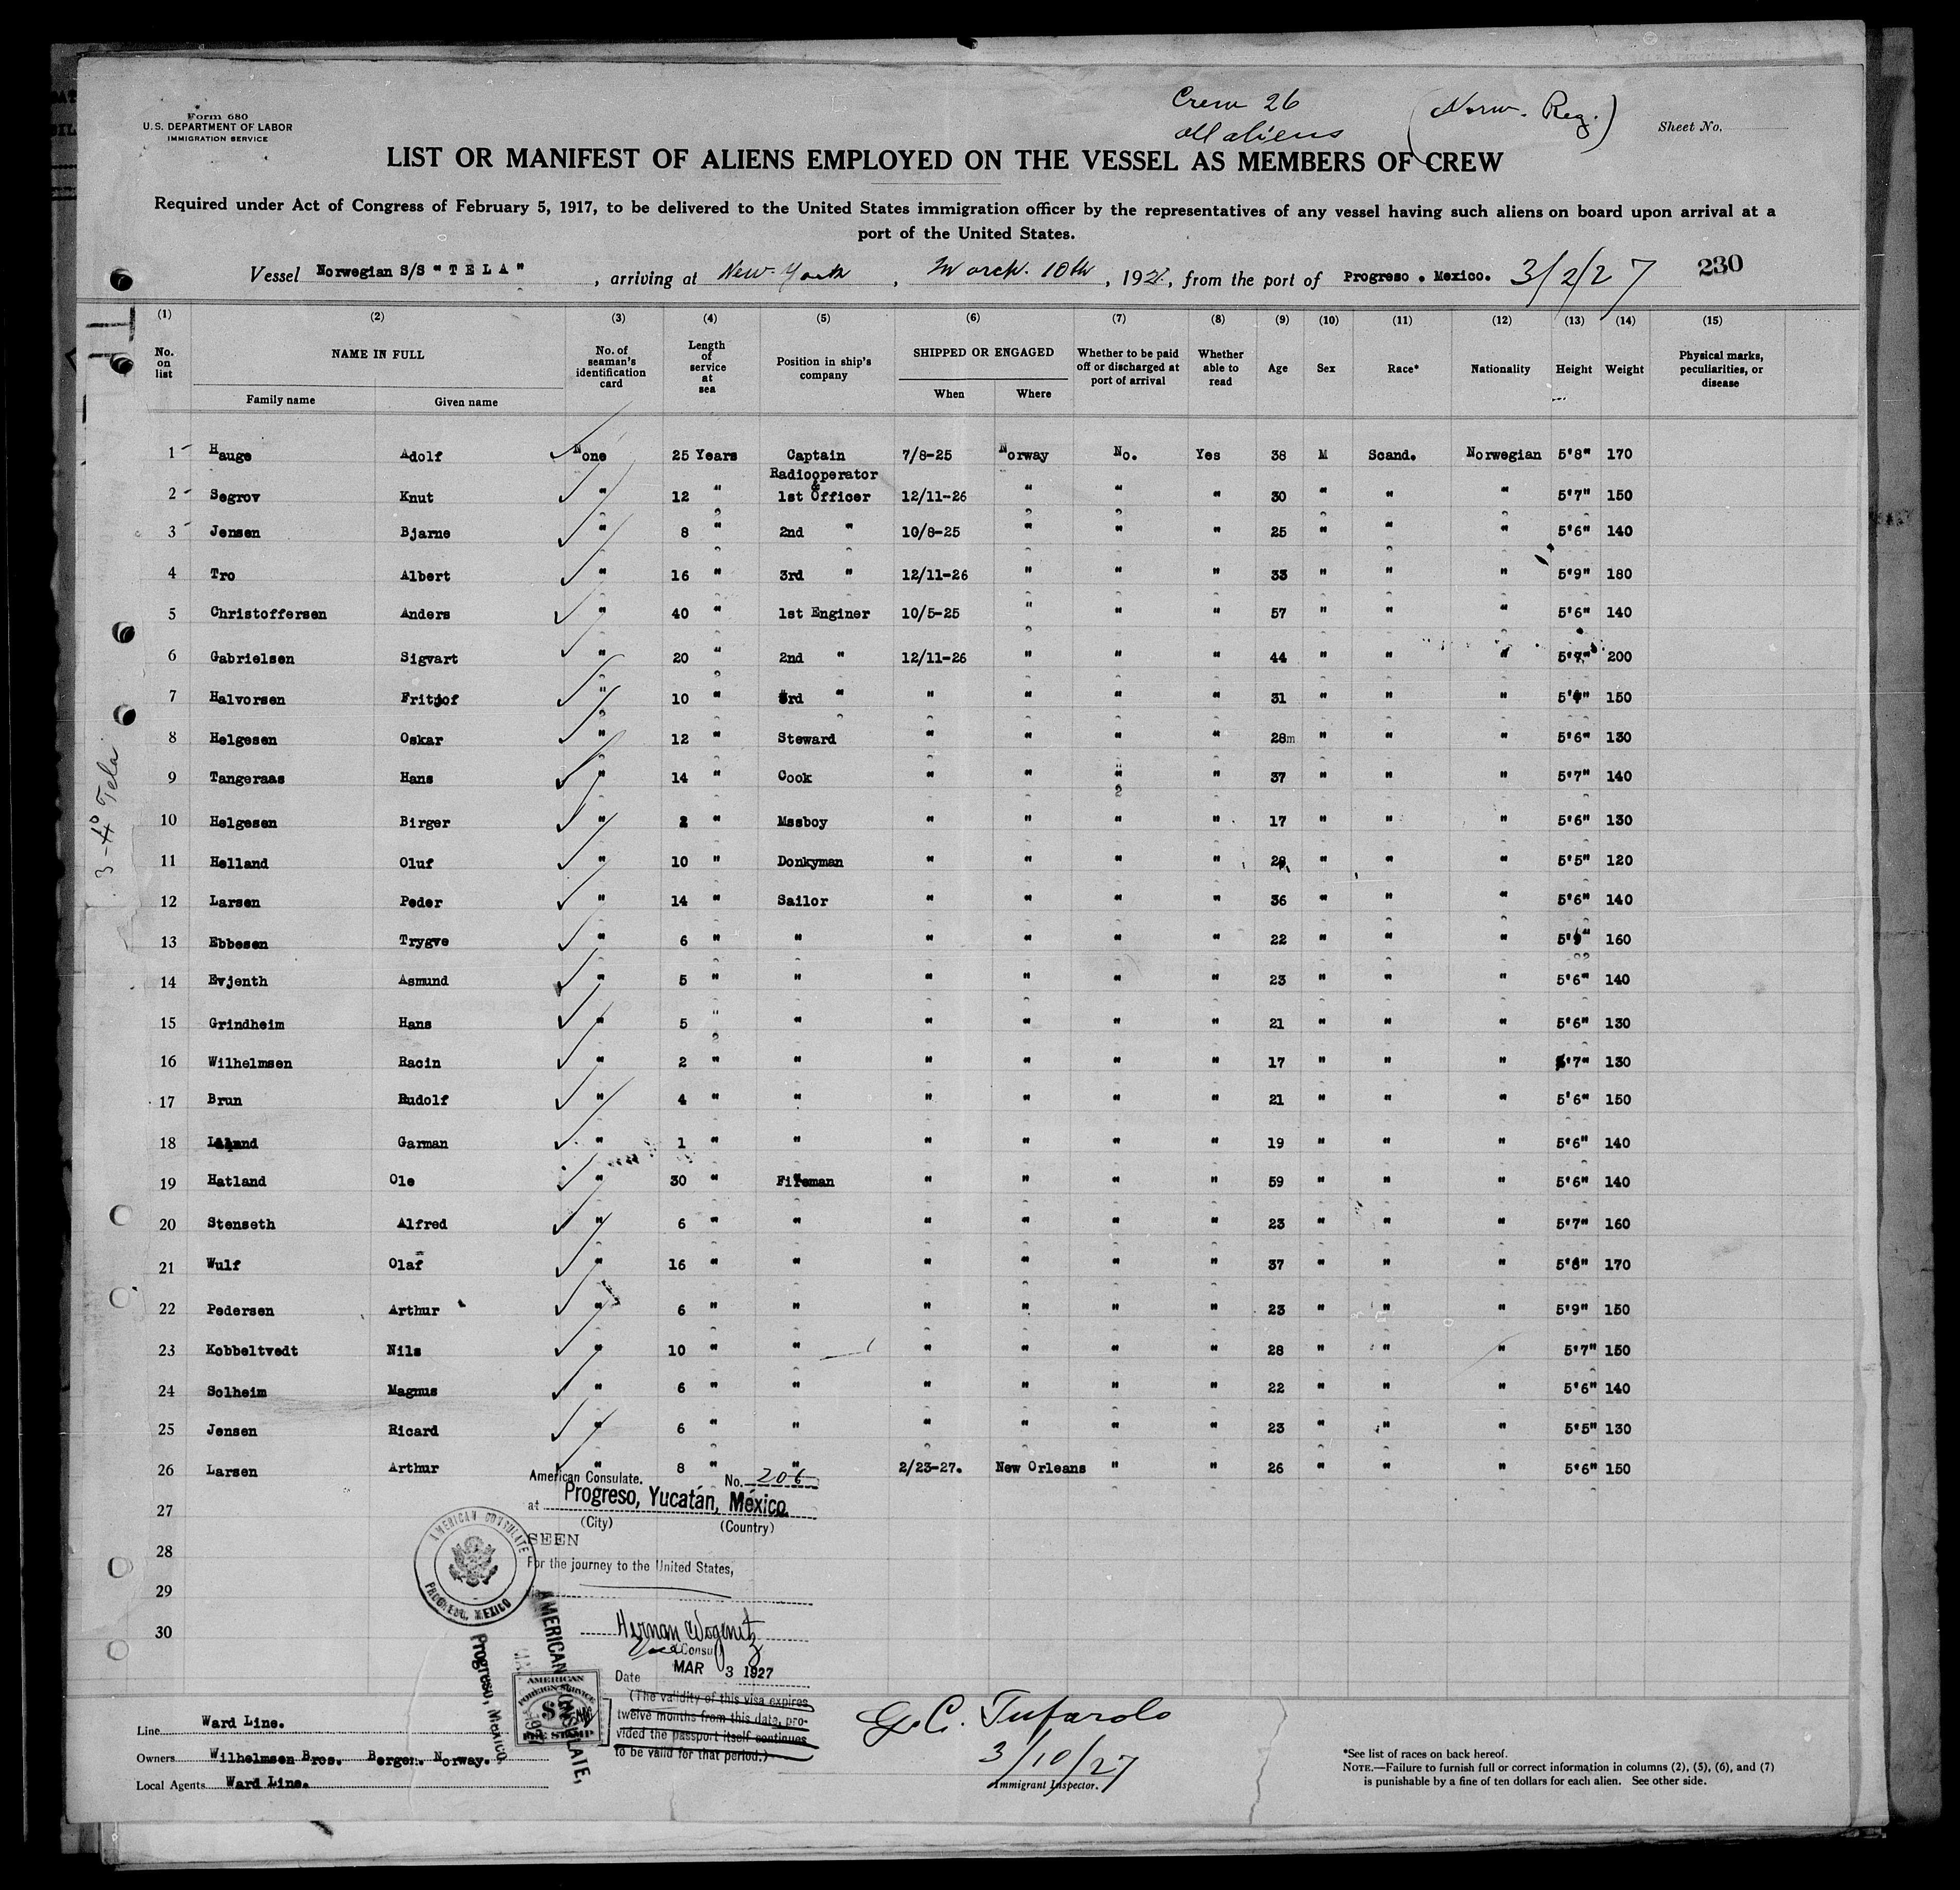 Form 680
U.S. DEPARTMENT OF LABOR
IMMIGRATION SERVICE
Crew 26
All aliens
(Norw. Reg.)
Sheet No.
LIST OR MANIFEST OF ALIENS EMPLOYED ON THE VESSEL AS MEMBERS OF CREW
Required under Act of Congress of February 5, 1917, to be delivered to the United States immigration officer by the representatives of any vessel having such aliens on board upon arrival at a
port of the United States.
Vessel Norwegian S/S "TELA", arriving at New York, March. 10th, 192, from the port of Progreso. Mexico. 3/2/27 230
(1) (2) (3) (4) (5) (6) (7) (8) (9) (10) (11) (12) (13) (14) (15)
No. on list NAME IN FULL No. of seaman's identification card Length of service at sea Position in ship's company SHIPPED OR ENGAGED Whether to be paid off or discharged at port of arrival Whether able to read Age Sex Race* Nationality Height Weight Physical marks, peculiarities, or disease
Family name Given name When Where
1 Hauge Adolf None 25 Years Captain 7/8-25 Norway No. Yes 38 M Scand. Norwegian 5'8" 170
Radiooperator &
2 Segrov Knut " 12 " 1st Officer 12/11-26 " " " 30 " " " 5'7" 150
3 Jensen Bjarne " 8 " 2nd " 10/8-25 " " " 25 " " " 5'6" 140
4 Tro Albert " 16 " 3rd " 12/11-26 " " " 33 " " " 5'9" 180
5 Christoffersen Anders " 40 " 1st Enginer 10/5-25 " " " 57 " " " 5'6" 140
6 Gabrielsen Sigvart " 20 " 2nd " 12/11-26 " " " 44 " " " 5'7" 200
7 Halvorsen Fritjof " 10 " 3rd " " " " " 31 " " " 150
8 Helgesen Oskar " 12 " Steward " " " " 28m " " " 5'6" 130
9 Tangeraas Hans " 14 " Cook " " " " 37 " " " 5'7" 140
10 Helgesen Birger " 2 " Mssboy " " " " 17 " " " 5'6" 130
11 Helland Oluf " 10 " Donkyman " " " " " " " 5'5" 120
12 Larsen Peder " 14 " Sailor " " " " 36 " " " 5'6" 140
13 Ebbesen Trygve " 6 " " " " " " 22 " " " 160
14 Evjenth Asmund " 5 " " " " " " 23 " " " 5'6" 140
15 Grindheim Hans " 5 " " " " " " 21 " " " 5'6" 130
16 Wilhelmsen Racin " 2 " " " " " " 17 " " " 5'7" 130
17 Brun Rudolf " 4 " " " " " " 21 " " " 5'6" 150
18 Garman " 1 " " " " " " 19 " " " 5'6" 140
19 Hatland Ole " 30 " Fireman " " " " 59 " " " 5'6" 140
20 Stenseth Alfred " 6 " " " " " " 23 " " " 5'7" 160
21 Wulf Olaf " 16 " " " " " " 37 " " " 170
22 Pedersen Arthur " 6 " " " " " " 23 " " " 5'9" 150
23 Kobbeltvedt Nils " 10 " " " " " " 28 " " " 5'7" 150
24 Solheim Magnus " 6 " " " " " " 22 " " " 5'6" 140
25 Jensen Ricard " 6 " " " " " " 23 " " " 5'5" 130
26 Larsen Arthur " 8 " " 2/23-27. New Orleans " " 26 " " " 5'6" 150
27
28
29
30
3-4° Tela
American Consulate. No. 206
at Progreso, Yucatán, México.
(City) (Country)
SEEN
For the journey to the United States,
AMERICAN CONSULATE
PROGRESO, MEXICO
Vice Consul
Date MAR 3 1927
(The validity of this visa expires
twelve months from this data, pro-
vided the passport itself continues
to be valid for that period.)
AMERICAN CONSULATE,
Progreso, Mexico
AMERICAN
FOREIGN SERVICE
FEE STAMP
Line Ward Line.
Owners Wilhelmsen Bros. Bergen. Norway.
Local Agents Ward Line.
G. C. Tufarolo
3/10/27
Immigrant Inspector.
*See list of races on back hereof.
NOTE.—Failure to furnish full or correct information in columns (2), (5), (6), and (7)
is punishable by a fine of ten dollars for each alien. See other side.